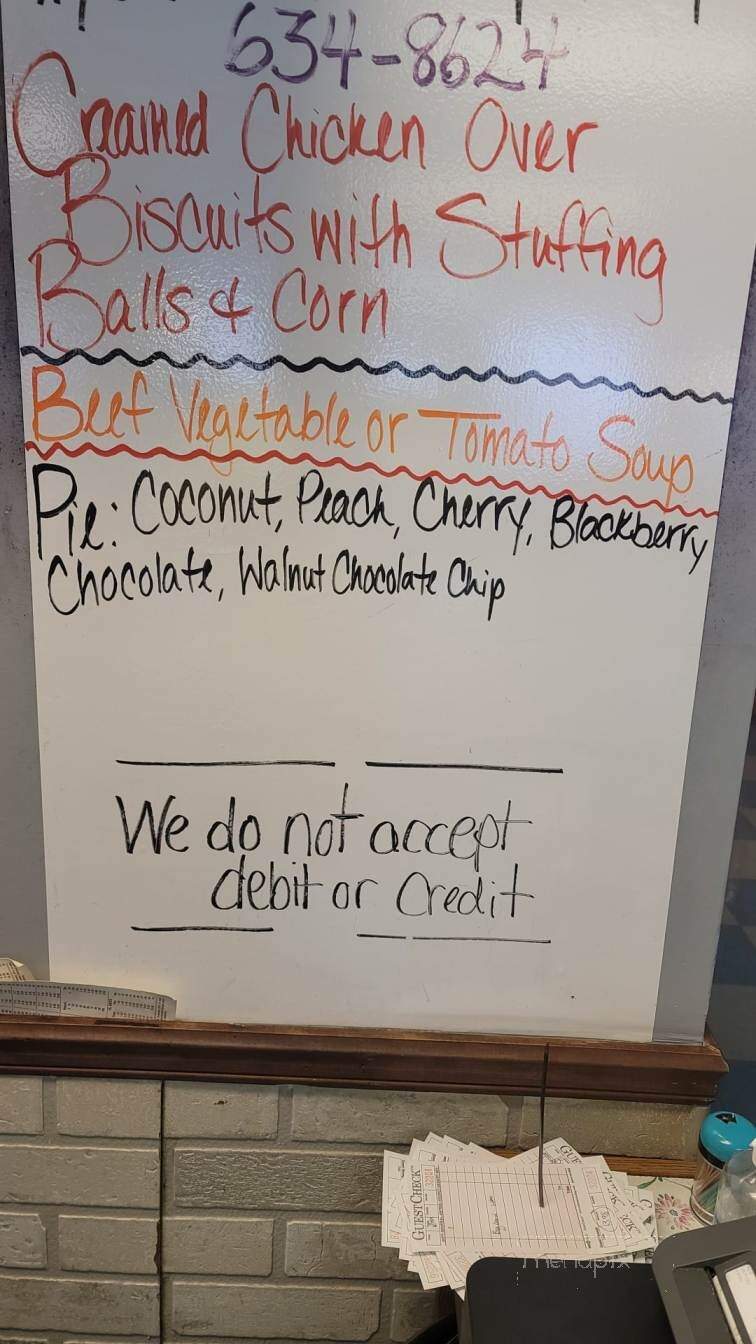 634-8624
Creamed Chicken Over
Biscuits with Stuffing
Balls & Corn
Beef Vegetable or Tomato Soup
Pie: Coconut, Peach, Cherry, Blackberry
Chocolate, Walnut Chocolate Chip
We do not accept
debit or Credit
GUEST CHECK
menupix